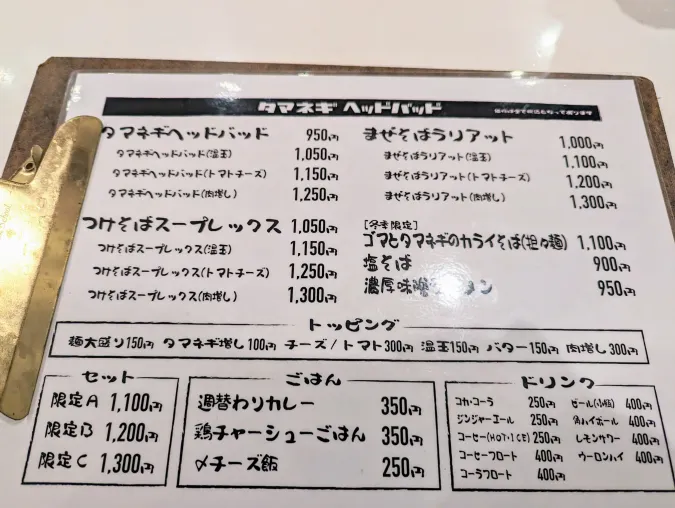 タマネギ ヘッドバッド
タマネギヘッドバッド 950円
タマネギヘッドバッド(温玉) 1,050円
タマネギヘッドバッド(トマトチーズ) 1,150円
タマネギヘッドバッド(肉増し) 1,250円
つけそばスープレックス 1,050円
つけそばスープレックス(温玉) 1,150円
つけそばスープレックス(トマトチーズ) 1,250円
つけそばスープレックス(肉増し) 1,300円
まぜそばラリアット 1,000円
まぜそばラリアット(温玉) 1,100円
まぜそばラリアット(トマトチーズ) 1,200円
まぜそばラリアット(肉増し) 1,300円
[冬季限定]
ゴマとタマネギのカライそば(坦々麺) 1,100円
塩そば 900円
濃厚味噌 メン 950円
トッピング
麺大盛り150円 タマネギ増し100円 チーズ/トマト300円 温玉150円 バター150円 肉増し300円
セット
限定A 1,100円
限定B 1,200円
限定C 1,300円
ごはん
週替わりカレー 350円
鶏チャーシューごはん 350円
〆チーズ飯 250円
ドリンク
コカ・コーラ 250円
ジンジャーエール 250円
コーヒー(HOT・ICE) 250円
コーヒーフロート 400円
コーラフロート 400円
ビール(小瓶) 400円
角ハイボール 400円
レモンサワー 400円
ウーロンハイ 400円